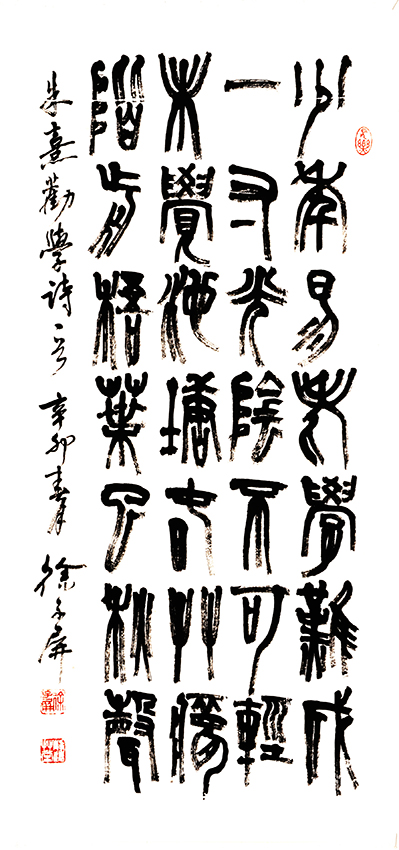 少年易老學難成
一寸光陰不可輕
未覺池塘春草夢
階前梧葉已秋聲
朱熹勸學詩一首 辛卯春 徐屏